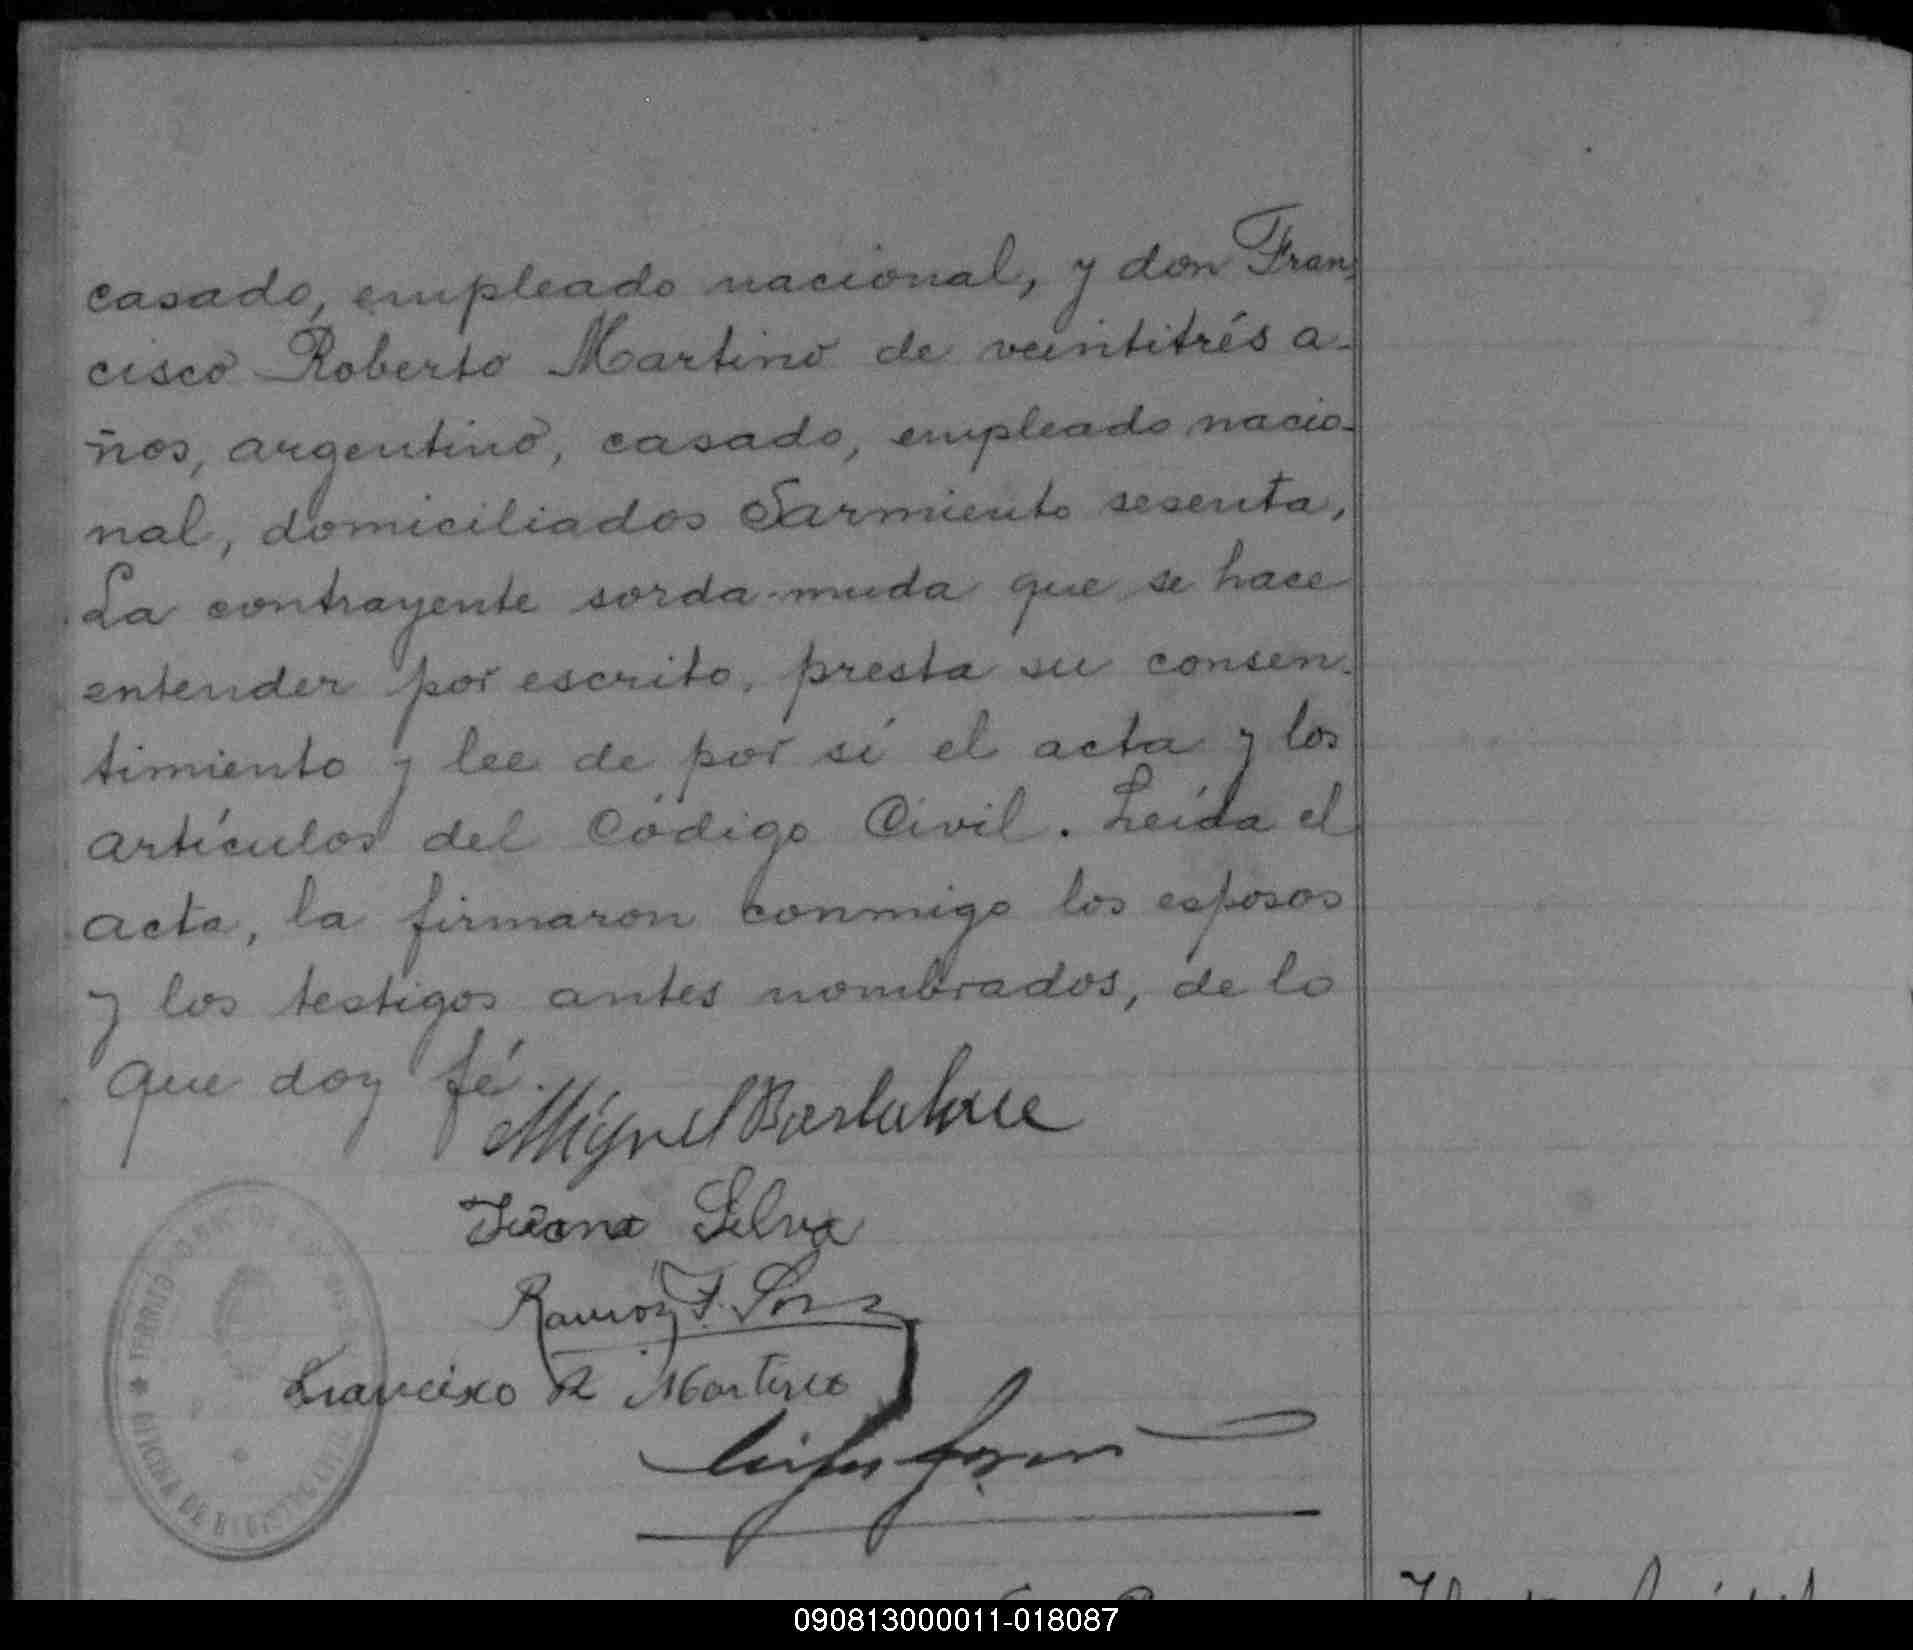 casado, empleado nacional, y don Fran-
cisco Roberto Martino de veintitrés a-
ños, argentino, casado, empleado nacio-
nal, domiciliados Sarmiento sesenta,
La contrayente sorda-muda que se hace
entender por escrito, presta su consen-
timiento y lee de por sí el acta y los
artículos del Código Civil. Leída el
acta, la firmaron conmigo los esposos
y los testigos antes nombrados, de lo
que doy fé.
Miguel
Juana Silva
Ramón F.
Francisco R Martino
OFICINA DE REGISTRO CIVIL
090813000011-018087